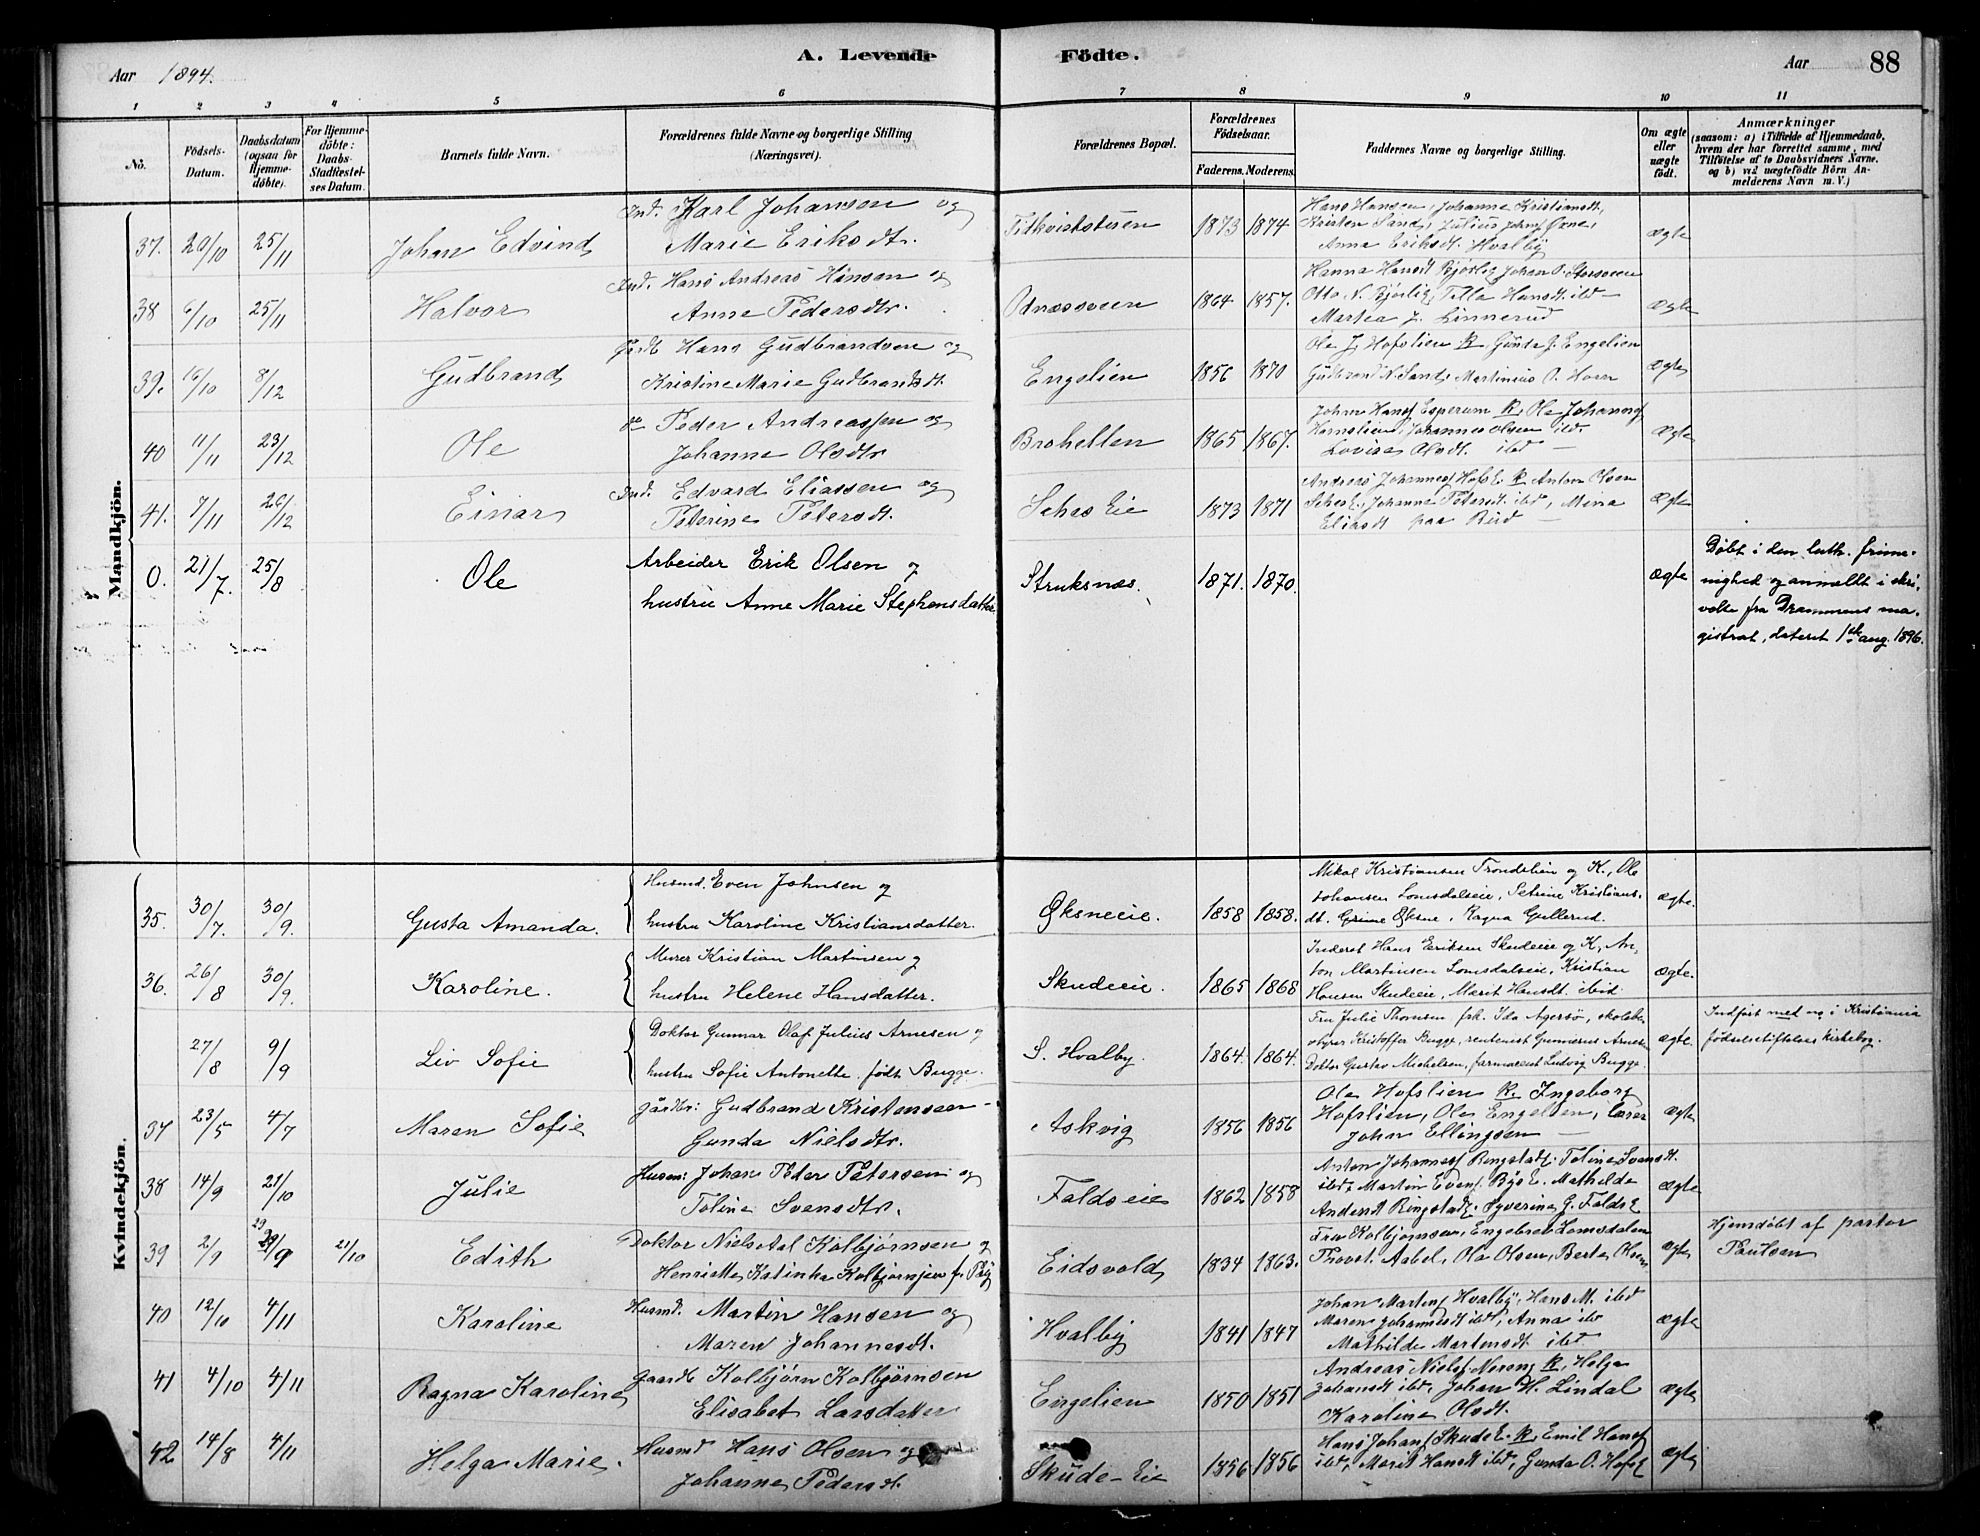 A. Levende Födte.
Aar 1894.
Aar 88
1 2 3 4 5 6 7 8 9 10 11
No.
Födsels-Datum.
Daabsdatum (ogsaa for Hjemmedöbte).
For Hjemmedöbte: Daabs-Stadfæstelses Datum.
Barnets fulde Navn.
Forældrenes fulde Navne og borgerlige Stilling (Næringsvei).
Forældrenes Bopæl.
Forældrenes Födselsaar.
Faderens. Moderens.
Faddernes Navne og borgerlige Stilling.
Om ægte eller uægte födt.
Anmærkninger
(saasom: a) i Tilfælde af Hjemmedaab, hvem der har forrettet samme, med Tilföielse af to Daabsvidners Navne, og b) ved uægtefödte Börn Anmelderens Navn m. V.)
Mandkjön.
37. 20/10 25/11 Johan Edvind Ind. Karl Johansen og
Marie Eriksdtr. 1873 1874 Hans Hansen, Johanne Kristiansdt,
Anna Eriksdt. Hvalby ægte
38 6/10 25/11 Halvor Ind. Hans Andreas Hansen og
Anne Pedersdtr. Odnæsveen 1864 1857. Hanna Hansdt Bjørlig Johan
Otto N. Bjørlig, Hansdt. ibd
Martea J. Linnerud ægte
39. 16/10 8/12 Gudbrand Gårdb Hans Gudbrandsen og
Kristine Marie Gudbrandsdt. Engelien 1856 1870 Ole J. Hofslien K, Gunda J. Engelien
Gudbrand N. Sand, Martinius O. ægte
40 11/11 23/12 Ole do Peder Andreassen og
Johanne Olsdtr Brohellen 1865 1867. John Hans Esperum K, Ole Johannes
Johannes Olsen ibd.
Lovise Olsdt. ibd ægte
41. 7/11 26/12 Einar Ind. Edvard Eliassen og
Peterine Petersdt. Sehes Eie 1873 1871 Andreas Johannes Hofs E. K Anton Olsen
Johanne Petersdt. ibd, Mina
Eliasdt paa Biri ægte
0. 21/7. 25/8 Ole Arbeider Erik Olsen og
hustru Anne Marie Stephensdatter. Struksnæs. 1871. 1870. ægte
Døbt i den luth. frime-
nighed og anmeldt i skri-
velse fra Drammens ma-
gistrat, dateret 1ste aug. 1896.
Kvindekjön.
35. 30/7. 30/9. Gusta Amanda. Husmd. Even Johnsen og
hustru Karoline Kristiansdatter. Øksneeie. 1858 1858. Mikal Kristiansen Trondelien og K., Ole
Johansen Lomsdalseie, Petrine Kristians-
dt. Grime Øksne, Ragna Gullerud. ægte.
36. 26/8 30/9. Karoline. Murer Kristian Martinsen og
hustru Helene Hansdatter. Skudeeie. 1865 1868 Inderst Hans Eriksen Skudeeie og K, An-
ton Martinsen Lomsdalseie, Kristian
Hansen Skudeeie, Marit Hansdt. ibid. ægte.
27/8 9/9 Liv Sofie Doktor Gunnar Olaf Julius Arnesen og
hustru Sofie Antonette født Bugge. S. Hvalby. 1864. 1864. Fru Julie Thomsen frk. Ida Agersø, skolebe-
styrer Kristoffer Bugge, rentenist Gunnerus Arnesen
Doktor Gustav Michelsen, farmaceut Ludvig Bugge. ægte.
Indført med no i Kristiania
fødselsstiftelses kirkebog.
37 23/5 4/7 Maren Sofie gårdbr: Gudbrand Kristensen -
Gunda Nielsdtr. Askvig 1856 1856 Ole Hofslien K. Ingeborg
Hofslien, Ole Engelien,
John Ellingsen ægte
38 14/9 21/10 Julie Husm: Johan Peder Petersen og
Toline Svensdtr. Faldseie 1862 1858 Anton Johannes Ringstad E. Toline Svensdt.
ibd, Martin Evens. Mathilde
Andersdt Ringstad E. Syverine G. Falds E ægte
39 2/9 29/9 21/10 Edith Doktor Niels Aal Kolbjørnsen og
Henriette Katinka Kolbjørnsen f. Eidsvold 1834 1863. Fru Kolbjørnsen, Engebret Lomsdalen
Aabel, Ole Olsen, Berte Olsen ægte
Hjemdøbt af pastor
Paulsen
40 12/10 4/11 Karoline Husmd. Martin Hansen og
Maren Johannesdt. Hvalby 1841 1847 Johan Martins Hvalby, Hans M. ibd
Maren Johannesdt ibd, Anna ibd
Mathilde Martinsdt ibd ægte
41 4/10 4/11 Ragna Karoline Gaardb Kolbjørn Kolbjørnsen
Elisabet Larsdatter Engelien 1850 1851 Andreas Niels. Nereng K, Helga
Johansdt ibd, Johan H. Lindal
Karoline Olsdt. ægte
42 14/8 4/11 Helga Marie. Husmd Hans Olsen og
Johanne Pedersdt. Skude-Eie 1856 1856 Hans Johans Skude E. K. Emil Hans
ibd, Marit Hansdt ibd, Gunda O. Hofs E ægte